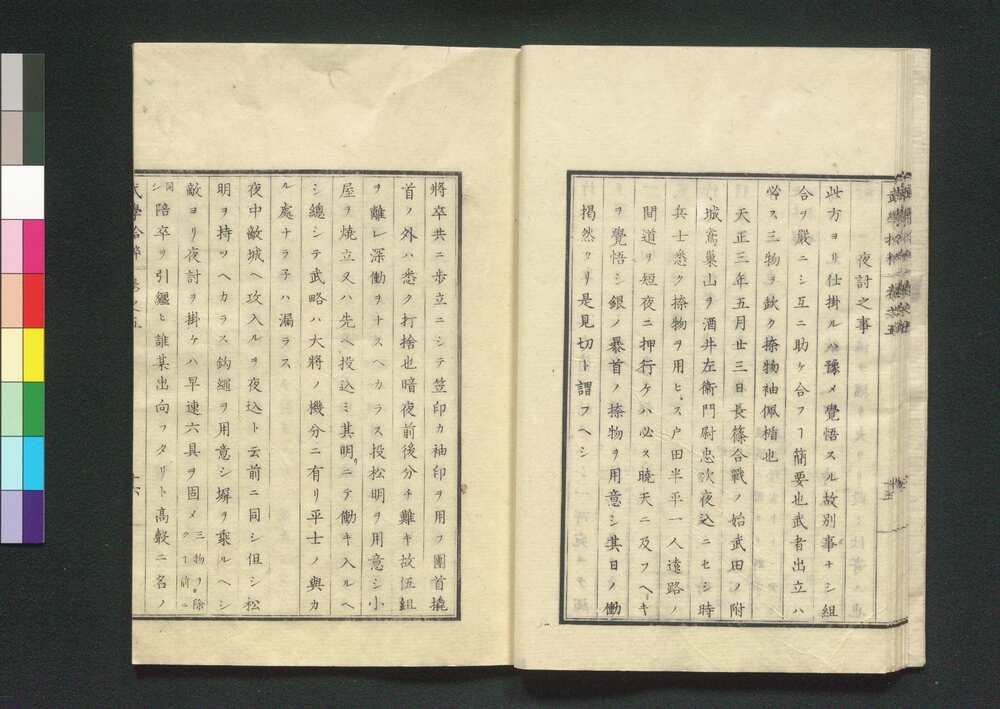 夜討之事
此方ヨリ仕掛ルハ豫メ覺悟スル故別事ナシ組
合ヲ嚴ニシ互ニ助ケ合フヿ簡要也武者出立ハ
必ス三物ヲ欽ク捺物袖佩楯也
天正三年五月廿三日長篠合戰ノ始武田ノ附
城鳶巣山ヲ酒井左衛門尉忠次夜込ニセシ時
兵士悉ク捺物ヲ用ヒス戸田半平一人遠路ノ
間道ヲ短夜ニ押行ケハ必ス曉天ニ及フヘキ
ヲ覺悟シ銀ノ暴首ノ捺物ヲ用意シ其日ノ働
掲然タリ是見切ト謂フヘシ
將卒共ニ歩立ニシテ笠印カ袖印ヲ用フ團首擬
首ノ外ハ悉ク打捨也暗夜前後分チ難キ故伍組
ヲ離レ深働ヲナスヘカラス投松明ヲ用意シ小
屋ヲ燒立又ハ先ヘ投込ミ其明リニテ働キ入ルヘ
シ總シテ武略ハ大將ノ機分ニ有リ平士ノ與カ
ル處ナラ子ハ漏ラス
夜中敵城ヘ攻入ルヲ夜込ト云前ニ同シ但シ松
明ヲ持ツヘカラス鈎繩ヲ用意シ塀ヲ乘ルヘシ
敵ヨリ夜討ヲ掛ケハ早速六具ヲ固メ三物ヲ除クヿ前ニ
同シ陪卒ヲ引纒ヒ誰某出向フタリト高聲ニ名ノ